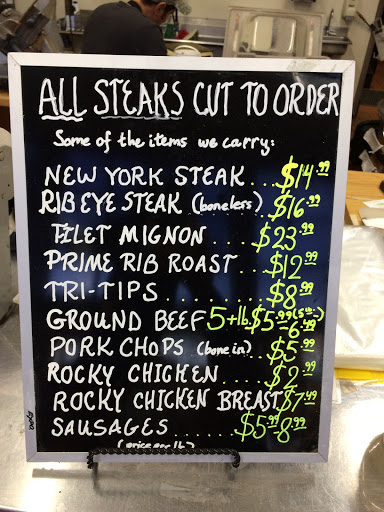 ALL STEAKS CUT TO ORDER
Some of the items we carry:
NEW YORK STEAK...$14.99
RIB EYE STEAK (boneless).$16.99
FILET MIGNON.....$23.99
PRIME RIB ROAST...$12.99
TRI-TIPS.......$8.99
GROUND BEEF 5+lb.$5.99(5lb-)
-6.49
PORK CHOPS (bone in)..$5.99
ROCKY CHICKEN.....$2.99
ROCKY CHICKEN BREAST$7.49
SAUSAGES......$5.99-8.99
(price per lb.)